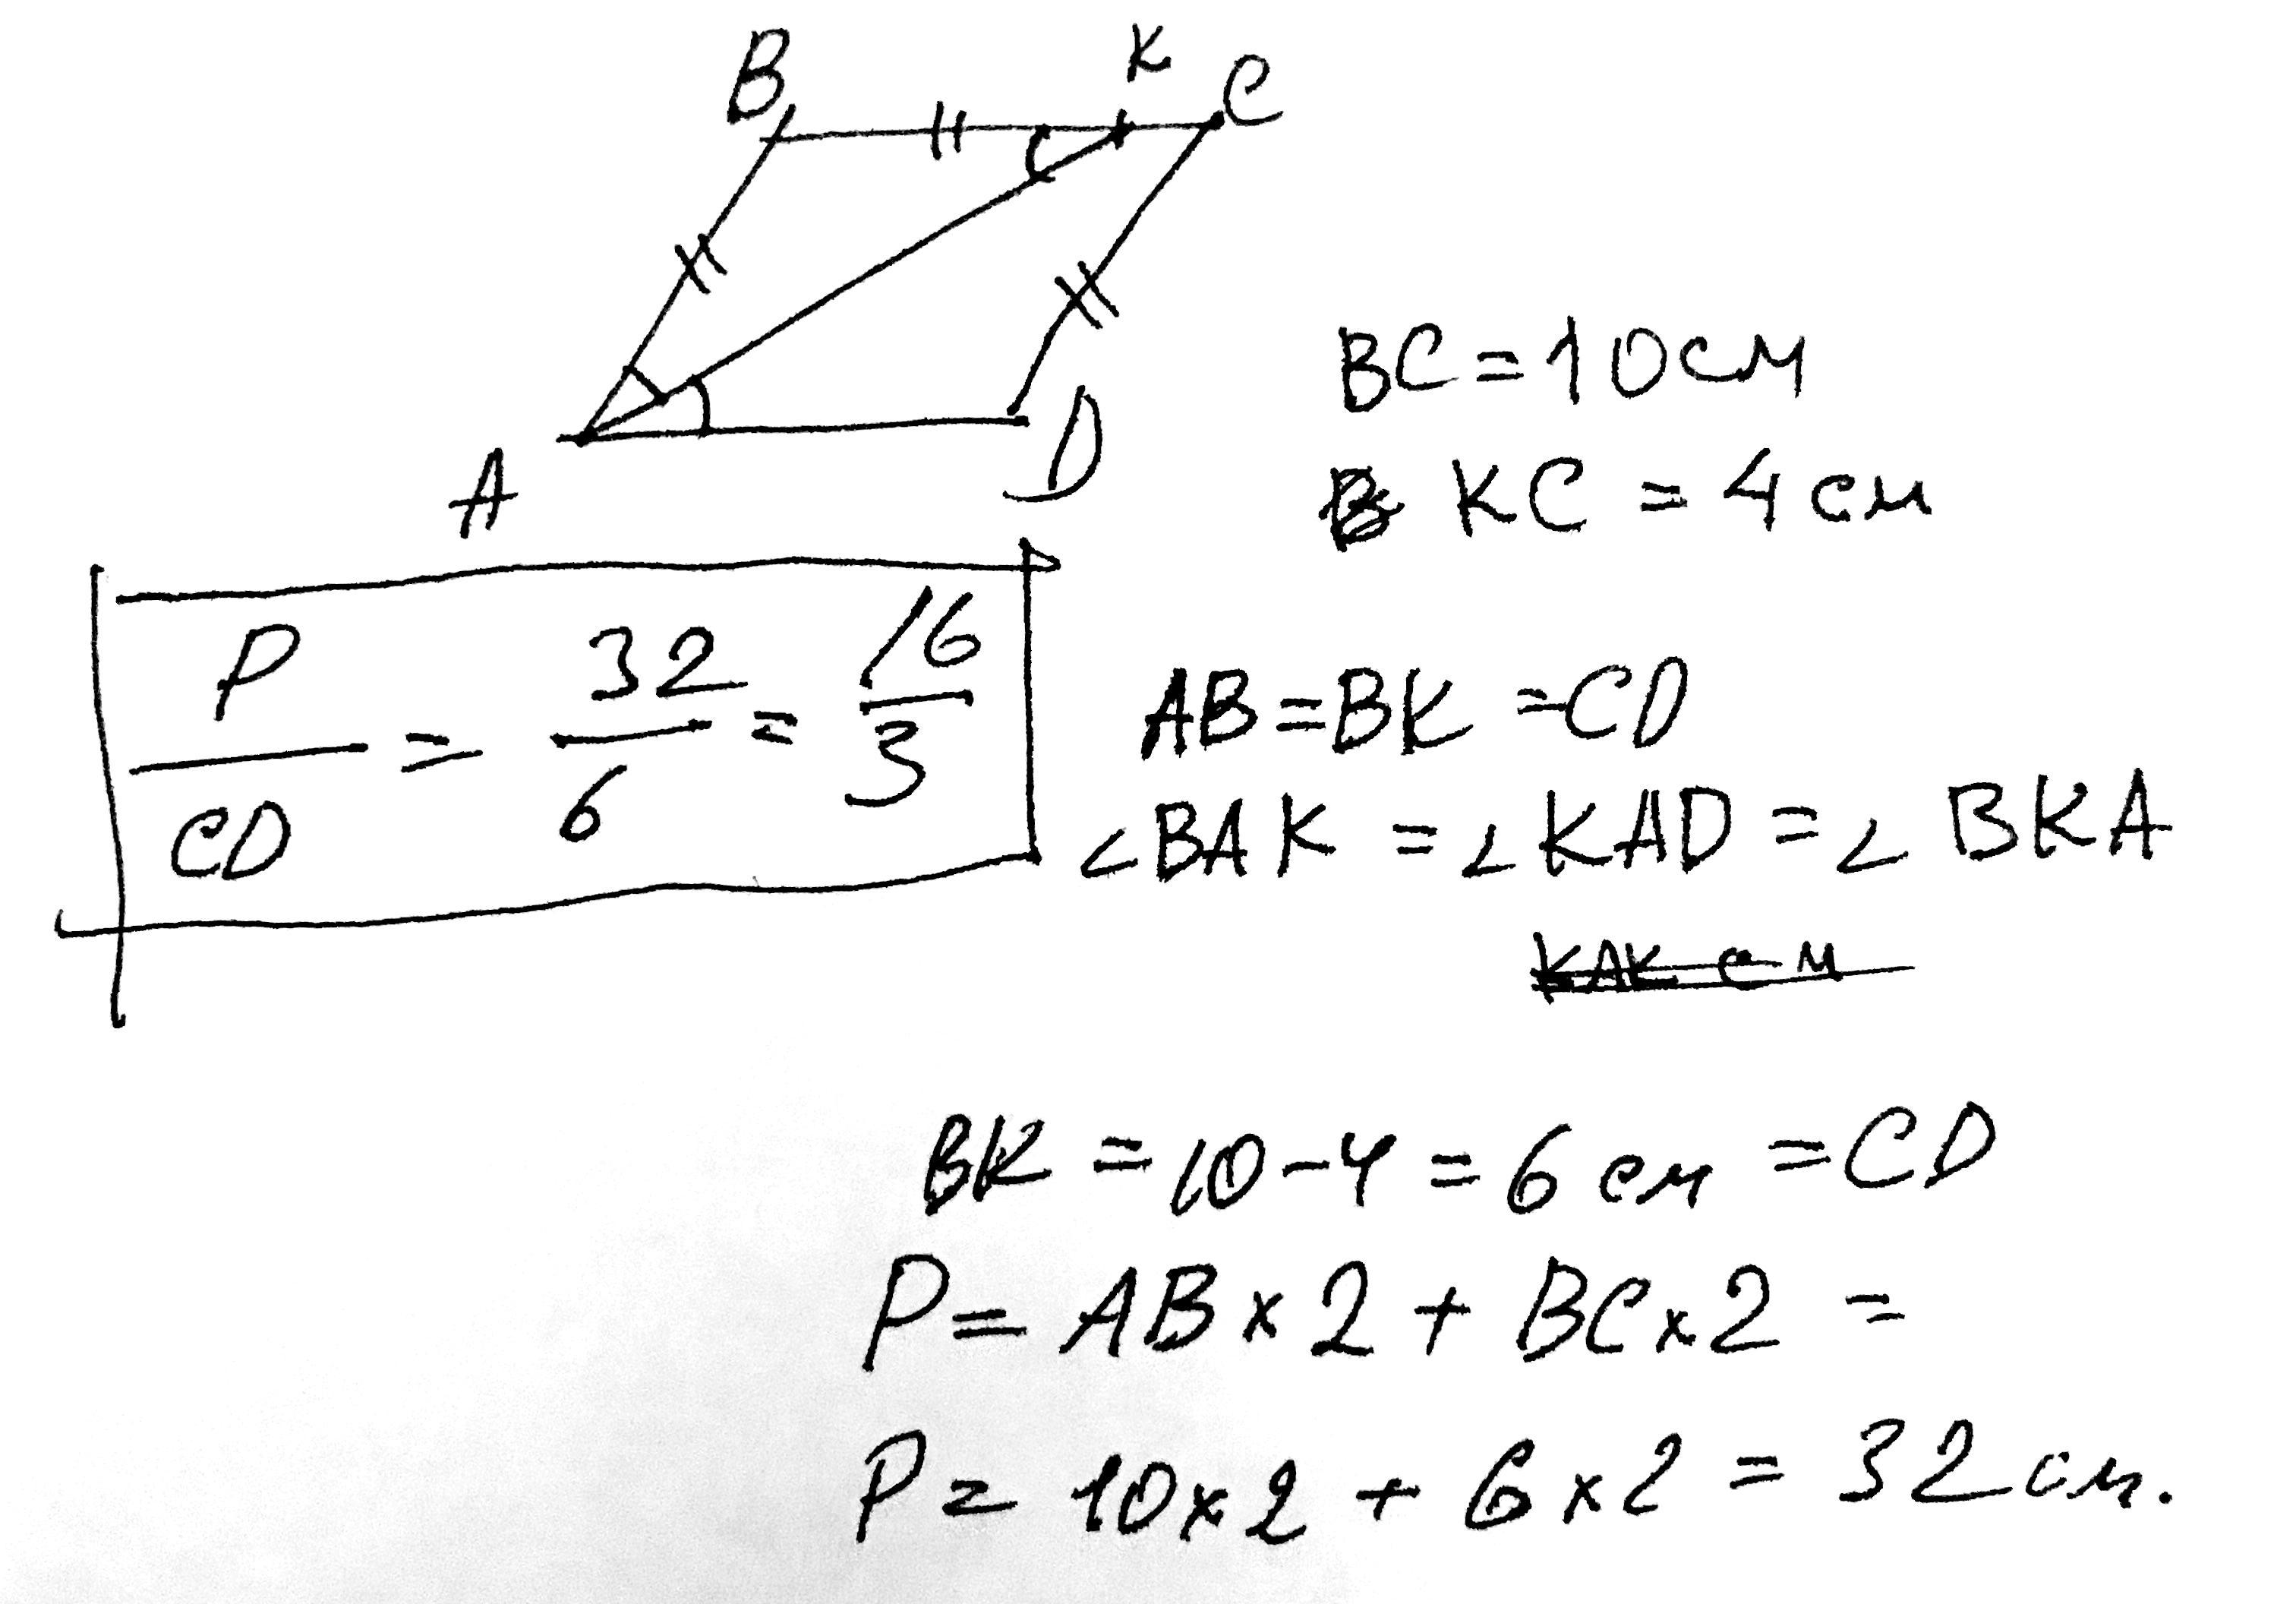 B K C
A D
BC = 10 см
KC = 4 см
P/CD = 32/6 = 16/3
AB = BK = CD
∠BAK = ∠KAD = ∠BKA
как см
BK = 10 - 4 = 6 см = CD
P = AB × 2 + BC × 2 =
P = 10 × 2 + 6 × 2 = 32 см.